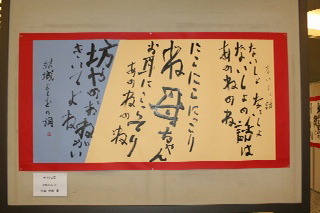 ないしょ話
ないしょ ないしょ
ないしょの話は
あのねのね
にこにこにっこり
ね母ちゃん
お耳にこっそり
あのねのね
坊やのおねがい
きいてよね
結城よしをの詞